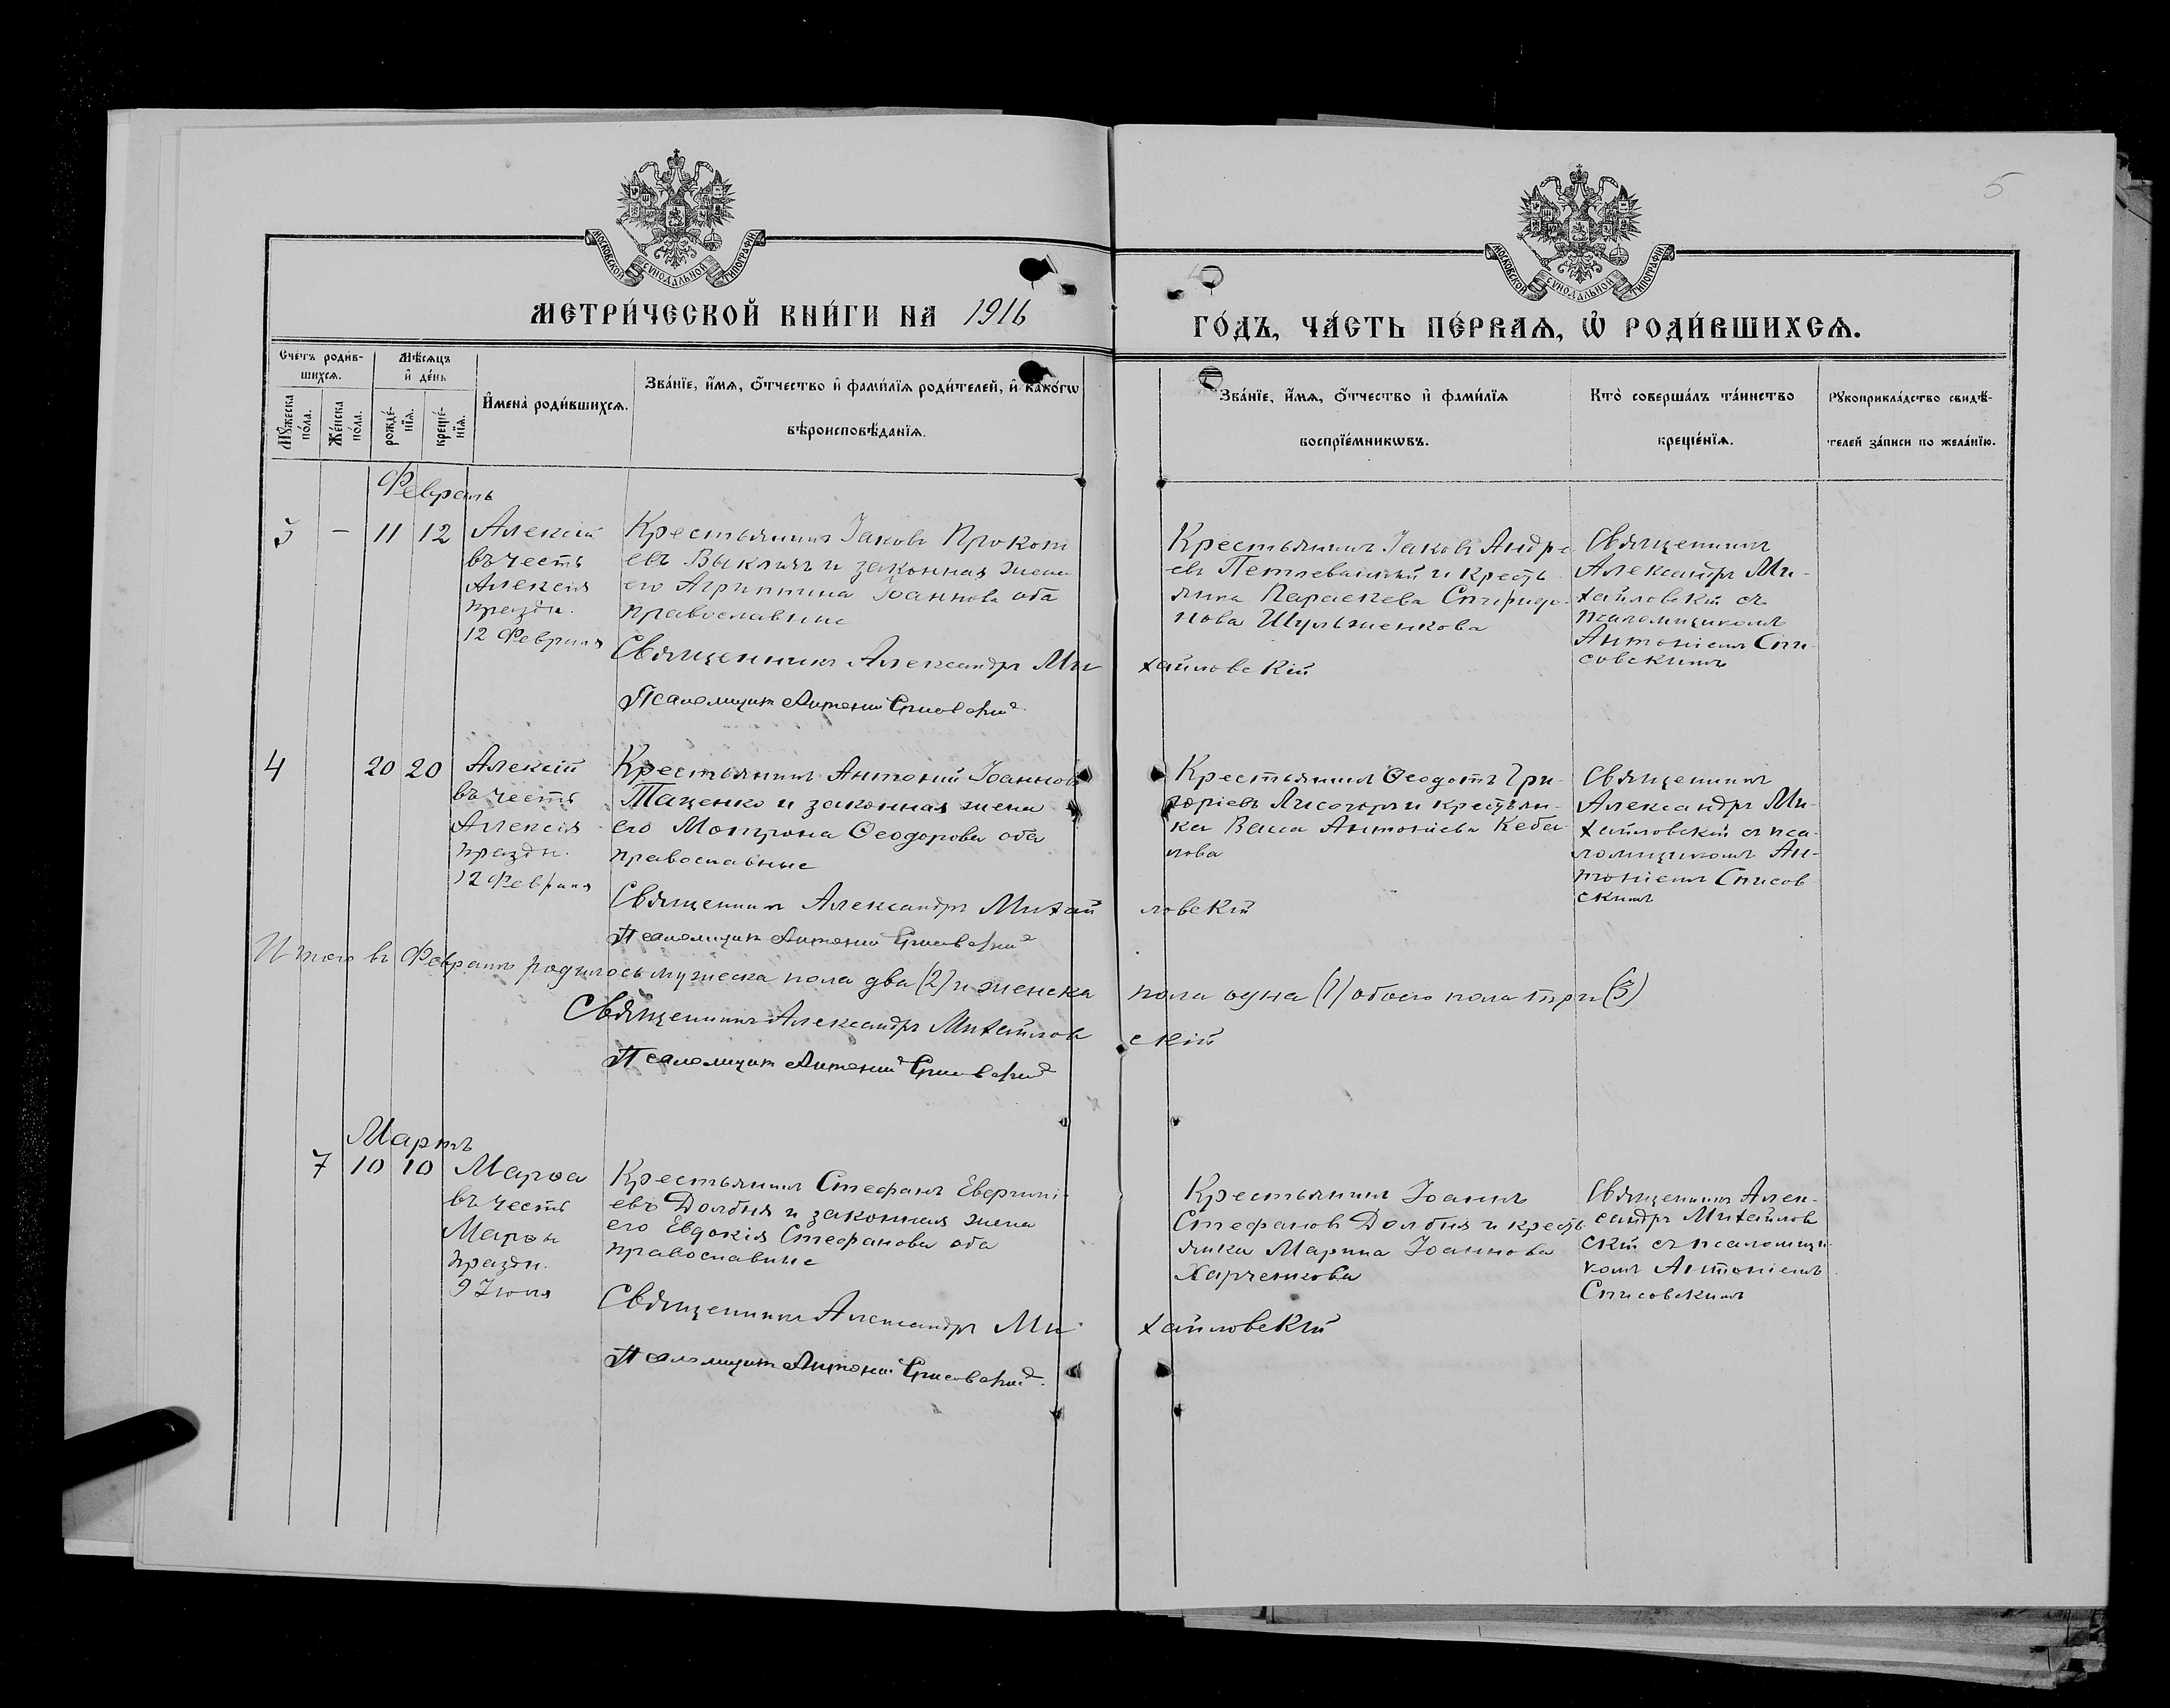 5
МОСКОВСКОЙ СѴНОДАЛЬНОЙ ТИПОГРАФІИ
МОСКОВСКОЙ СѴНОДАЛЬНОЙ ТИПОГРАФІИ
МЕТРИ́ЧЕСКОЙ КНИ́ГИ НА 1916
ГО́ДЪ, ЧА́СТЬ ПЕ́РВАѦ, Ѽ РОДИ́ВШИХСѦ.
Счетъ роди́в-
шихсѧ.
Мꙋ́жеска
по́ла.
Же́нска
по́ла.
Мѣ́сѧцъ
и҆ де́нь
рожде́-
нїѧ.
креще́-
нїѧ.
И҆мена̀ роди́вшихсѧ.
Зва́нїе, и҆́мѧ, ѻ҆́тчество и҆ фами́лїѧ роди́телей, и҆ како́гѡ
вѣроисповѣ́данїѧ.
Зва́нїе, и҆́мѧ, ѻ҆́тчество и҆ фами́лїѧ
воспрїе́мникѡвъ.
Кто̀ соверша́лъ та́инство
креще́нїѧ.
Рꙋкоприкла́дство свидѣ́-
телей за́писи по жела́нїю.
Февраль
3 – 11 12
Алексій
въ честь
Алексія
праздн.
12 Февраля
Крестьянинъ Іаковъ Прокоп
евъ Выкляхъ и законная жена
его Агриппина Іоаннова оба
православные
Крестьянинъ Іаковъ Андре
евъ и кресть
янка Параскева Спиридо-
нова Шульженкова
Священникъ
Александръ Ми-
хайловскій съ
псаломщикомъ
Антоніемъ Спи-
совскимъ
Священникъ Александръ Ми хайловскій
Псаломщикъ Антоній Списовскій
4 20 20
Алексій
въ честь
Алексія
праздн.
12 Февраля
Крестьянинъ Антоній Іоанновъ
Таценко и законная жена
его Матрона Ѳеодорова оба
православные
Крестьянинъ Ѳеодотъ Гри-
горіевъ Лисогоръ и крестьян-
ка Васса Антоніева Кеба
лова
Священникъ
Александръ Ми-
хайловскій съ пса-
ломщикомъ Ан-
тоніемъ Списов
скимъ
Священникъ Александръ Михай ловскій
Псаломщикъ Антоній Списовскій
Итого въ Февралѣ родилось мужеска пола два (2) и женска пола одна (1) обоего пола три (3)
Священникъ Александръ Михайлов скій
Псаломщикъ Антоній Списовскій
Мартъ
7 10 10
Марѳа
въ честь
Марѳы
праздн.
9 Іюля
Крестьянинъ Стефанъ
евъ Долбня и законная жена
его Евдокія Стефанова оба
православные
Крестьянинъ Іоаннъ
Стефановъ Долбня и кресть
янка Марина Іоаннова
Харченкова
Священникъ Алек-
сандръ Михайлов
скій съ псаломщи-
комъ Антоніемъ
Списовскимъ
Священникъ Александръ Ми- хайловскій
Псаломщикъ Антоній Списовскій